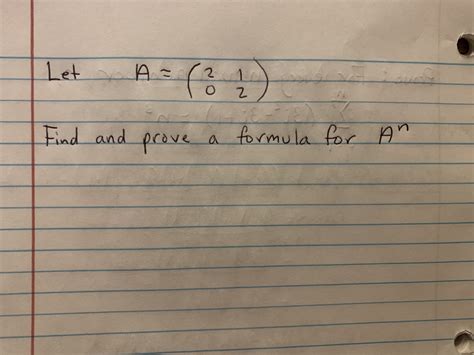 Let A = ( 2 1
0 2 )
Find and prove a formula for Aⁿ